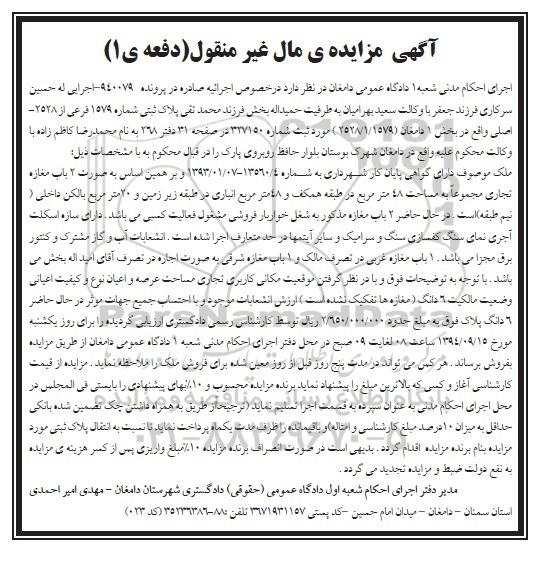 آگهی مزایده ی مال غیر منقول(دفعه ی۱)
اجرای احکام مدنی شعبه۱ دادگاه عمومی دامغان در نظر دارد درخصوص اجرائیه صادره در پرونده ۹۴۰۰۷۹-اجرایی له حسین
سرکاری فرزند جعفر با وکالت سعید بهرامیان به طرفیت حمیداله بخش فرزند محمد تقی پلاک ثبتی شماره ۱۵۷۹ فرعی از ۲۵۲۸-
اصلی واقع در بخش ۱ دامغان (۲۵۲۸/۱/۱۵۷۹) مورد ثبت شماره ۳۳۷۱۵۰ در صفحه ۳۱ دفتر ۲۶۸ به نام محمدرضا کاظم زاده با
وکالت محکوم علیه واقع در دامغان شهرک بوستان بلوار حافظ روبروی پارک را در قبال محکوم به با مشخصات ذیل:
ملک موصوف دارای گواهی پایان کار شهرداری به شماره ۱۳۵۶۰/۴-۱۳۹۳/۰۱/۰۷ و بر همین اساس به صورت ۲ باب مغازه
تجاری مجموعاً به مساحت ۴۸ متر مربع در طبقه همکف و ۴۸متر مربع انباری در طبقه زیر زمین و ۲۰متر مربع بالکن داخلی (
نیم طبقه)است . در حال حاضر ۲ باب مغازه مذکور به شغل خواربار فروشی مشغول فعالیت کسبی می باشد . دارای سازه اسکلت
آجری نمای سنگ کفسازی سنگ و سرامیک و سایر آیتمها در حد متعارف اجرا شده است . انشعابات آب و گاز مشترک و کنتور
برق مجزا می باشد . ۱ باب مغازه غربی در تصرف مالک و ۱ باب مغازه شرقی به صورت اجاره در تصرف آقای امید اله بخش می
باشد . با توجه به توضیحات فوق و با در نظر گرفتن موقعیت مکانی کاربری تجاری مساحت عرصه و اعیان نوع و کیفیت اعیانی
وضعیت مالکیت ۶ دانگ ( مغازه ها تفکیک نشده است ) ارزش انشعابات موجود و با احتساب جمیع جهات موثر در حال حاضر
۶ دانگ پلاک فوق به مبلغ حدود ۲/۶۵۰/۰۰۰/۰۰۰ ریال توسط کارشناس رسمی دادگستری ارزیابی گردیده را برای روز یکشنبه
مورخ ۱۳۹۴/۰۹/۱۵ ساعت ۰۸ لغایت ۰۹ صبح در محل دفتر اجرای احکام مدنی شعبه ۱ دادگاه عمومی دامغان از طریق مزایده
بفروش برساند . هر کس می تواند در مدت پنج روز قبل از روز معین شده برای فروش ملک را ملاحظه نماید . مزایده از قیمت
کارشناسی آغاز و کسی که بالاترین مبلغ را پیشنهاد نماید برنده مزایده محسوب و ۱۰٪بهای پیشنهادی را بایستی فی المجلس در
محل اجرای احکام مدنی به عنوان سپرده به قسمت اجرا تسلیم نماید (ترجیحاز طریق به همراه داشتن چک تضمین شده بانکی
حداقل به میزان ۱۰درصد مبلغ کارشناسی و امثاله) و باقیمانده را ظرف مدت یکماه پرداخت نماید تا نسبت به انتقال پلاک ثبتی مورد
مزایده بنام برنده مزایده اقدام گردد . بدیهی است در صورت انصراف برنده مزایده ۱۰٪مبلغ واریزی پس از کسر هزینه ی مزایده
به نفع دولت ضبط و مزایده تجدید می گردد .
مدیر دفتر اجرای احکام شعبه اول دادگاه عمومی (حقوقی) دادگستری شهرستان دامغان - مهدی امیر احمدی
استان سمنان - دامغان - میدان امام حسین -کد پستی ۳۶۷۱۹۳۱۱۵۷ تلفن :۸۸-۳۵۲۳۶۳۸۶ (کد ۰۲۳)
ParsNamadData
پایگاه اطلاع رسانی مناقصه و مزایده
۰۲۱-۸۸۳۴۹۶۷۰-۵